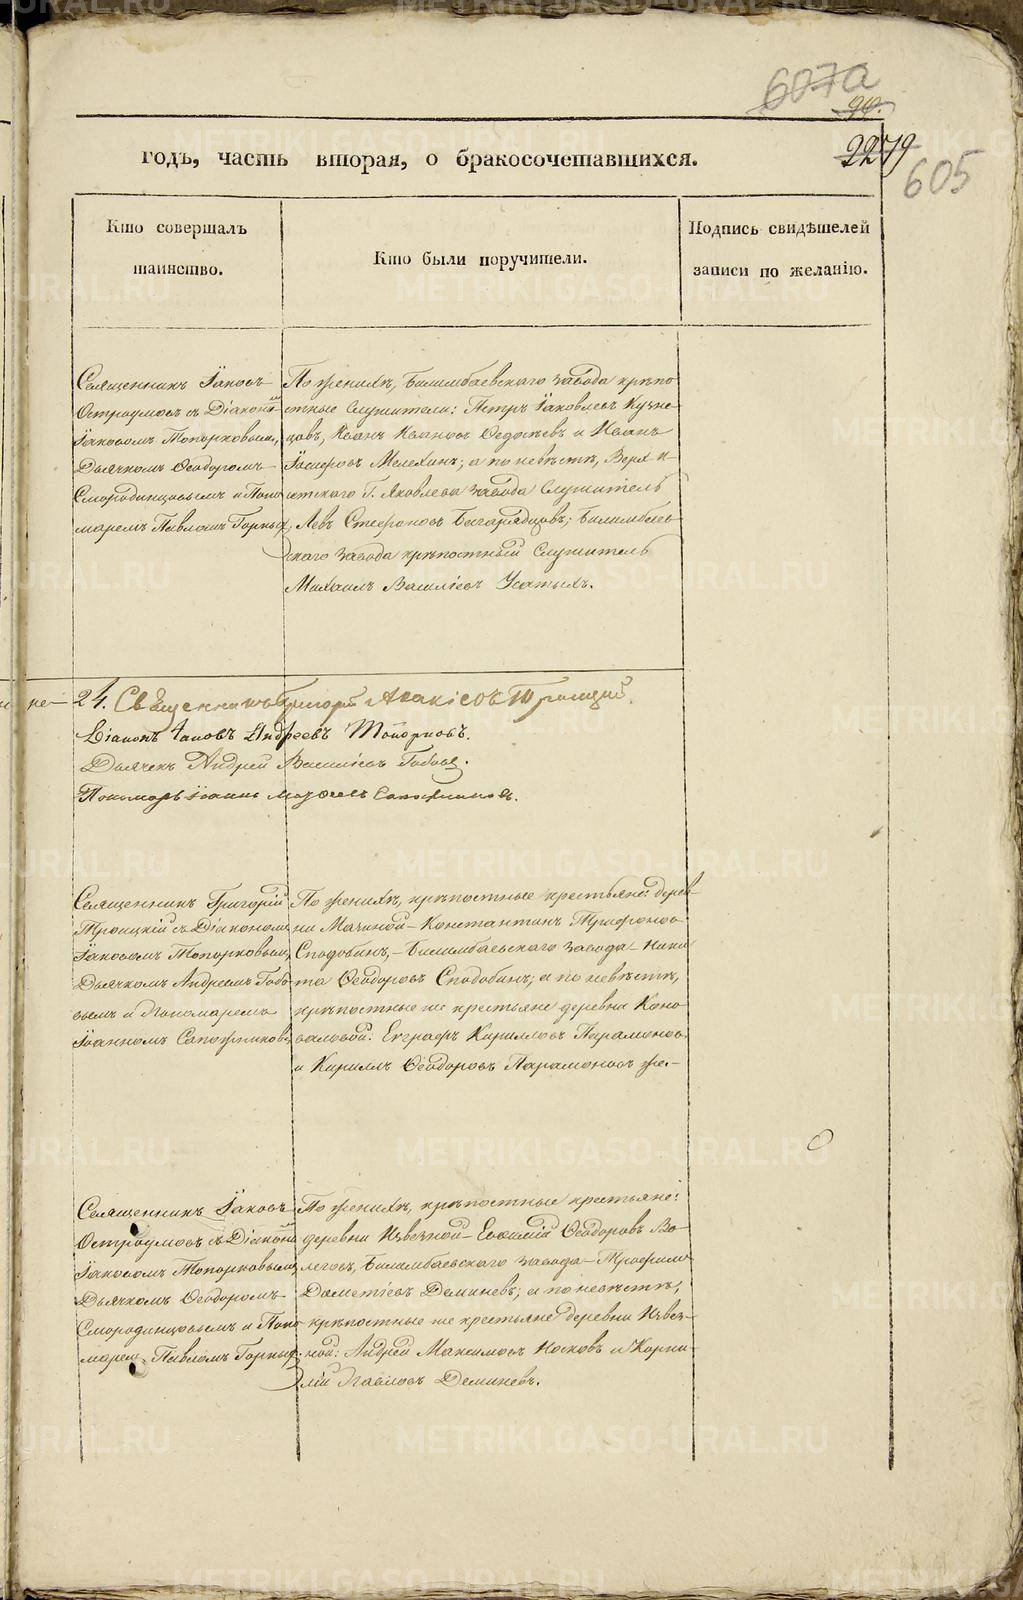 607а
90.
2279
605
годъ, часть вторая, о бракосочетавшихся.
Кто совершалъ
таинство.
Кто были поручители.
Подпись свидѣтелей
записи по желанію.
Священникъ Іаковъ
Остроумовъ съ Діакономъ
Іаковомъ Топорковымъ,
Дьячкомъ Ѳеодоромъ
Смородинцовымъ и Поно
маремъ Павломъ Горныхъ
По женихѣ, Билимбаевскаго завода крѣпо
стные служители: Петръ Іаковлевъ Кузне
цовъ, Иванъ Ивановъ Ѳедосѣевъ и Иванъ
Іосифовъ Мелехинъ; а по невѣстѣ, Верхъ И
сетскаго Г. Яковлева завода служитель
Левъ Стефановъ Багарядцовъ; Билимбаев
скаго завода крѣпостный служитель
Михаилъ Василіевъ Усатыхъ.
24. Священникъ Григорій Іоакісовъ Троицкій.
Діаконъ Іаковъ Андреевъ Топорковъ.
Дьячекъ Андрей Василіевъ Бабовъ.
Пономарь Іоаннъ Сапожниковъ.
Священникъ Григорій
Троицкій съ Діакономъ
Іаковомъ Топорковымъ,
Дьячкомъ Андреемъ Бабо
вымъ и Пономаремъ
Іоанномъ Сапожниковымъ
По женихѣ, крѣпостные крестьяне: дерев
ни Мачиной – Константинъ Трифоновъ
Сподобинъ, – Билимбаевскаго завода – Ники
та Ѳеодоровъ Сподобинъ; а по невѣстѣ,
крѣпостные же крестьяне деревни Коно
валовой: Евграфъ Кирилловъ Парамоновъ
и Кириллъ Ѳеодоровъ Парамоновъ же.–
Священникъ Іаковъ
Остроумовъ съ Діакономъ
Іаковомъ Топорковымъ,
Дьячкомъ Ѳеодоромъ
Смородинцовымъ и Поно
марем. Павломъ Горныхъ
По женихѣ, крѣпостные крестьяне:
деревни Извезной – Евѳимій Ѳеодоровъ Во
леговъ, Билимбаевскаго завода – Трофимъ
Дометіевъ Деминевъ; а по невѣстѣ,
крѣпостные же крестьяне деревни Извез
ной: Андрей Максимовъ Носковъ и Корни
лій Павловъ Деминевъ.
METRIKI.GASO-URAL.RU